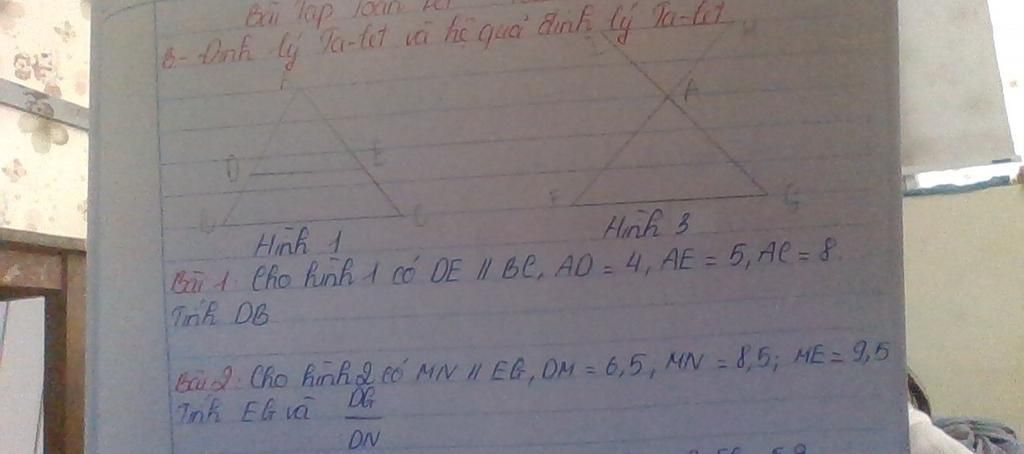 Bài Tập Toán
B - Định lý Ta-let và hệ quả định lý Ta-let
A
D E
B C
A
F G
Hình 1 Hình 3
Bài 1: Cho hình 1 có DE // BC, AD = 4, AE = 5, AC = 8.
Tính DB
Bài 2: Cho hình 2 có MN // EG, DM = 6,5, MN = 8,5; ME = 9,5
Tính EG và DG
DN